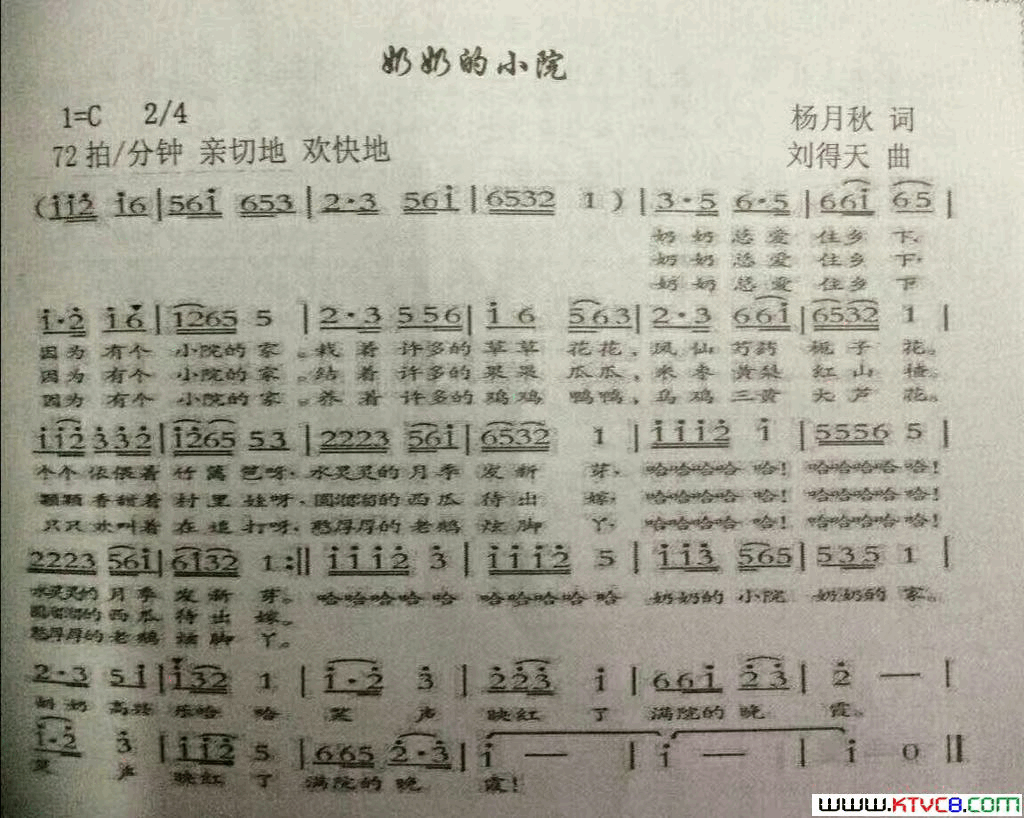 奶奶的小院
1=C 2/4 杨月秋 词
72拍/分钟 亲切地 欢快地 刘得天 曲
(i i 2 i 6 | 5 6 i 6 5 3 | 2·3 5 6 i | 6 5 3 2 1 ) | 3·5 6·5 | 6 6 i 6 5 |
奶奶总爱 住乡 下,
奶奶总爱 住乡 下,
奶奶总爱 住乡 下
i·2 i 6 | 1 2 6 5 5 | 2·3 5 5 6 | i 6 5 6 3 | 2·3 6 6 i | 6 5 3 2 1 |
因为 有个 小院的家。栽着 许多的 草草 花花,凤仙 芍药 栀子 花。
因为 有个 小院的家。结着 许多的 果果 瓜瓜,米枣 黄梨 红山 楂。
因为 有个 小院的家。养着 许多的 鸡鸡 鸭鸭,乌鸡 三黄 大芦 花。
i i 2 3 3 2 | i 2 6 5 5 3 | 2 2 2 3 5 6 i | 6 5 3 2 1 | i i i 2 i | 5 5 5 6 5 |
个个 依偎着 竹篱 笆呀,水灵灵的 月季 发新 芽,哈哈哈哈 哈!哈哈哈哈 哈!
颗颗 香甜着 村里 娃呀,圆溜溜的 西瓜 待出 嫁,哈哈哈哈 哈!哈哈哈哈 哈!
只只 欢叫着 在追 打呀,憨厚厚的 老鹅 炫脚 丫,哈哈哈哈 哈!哈哈哈哈 哈!
2 2 2 3 5 6 i | 6 i 3 2 1 :|| i i i 2 3 | i i i 2 5 | i i 3 5 6 5 | 5 3 5 1 |
水灵灵的 月季 发新 芽。 哈哈哈哈 哈 哈哈哈哈 哈 奶奶的 小院 奶奶的 家。
圆溜溜的 西瓜 待出 嫁。
憨厚厚的 老鹅 脚 丫。
2·3 5 i | i 3 2 1 | i·2 3 | 2 2 3 i | 6 6 i 2 3 | 2 — |
奶奶 高 乐哈 哈 笑 声 映红 了 满院的 晚 霞。
i·2 3 | i i 2 5 | 6 6 5 2·3 | i — | i — | i 0 ||
笑 声 映红 了 满院的 晚 霞!
www.KTVC8.com